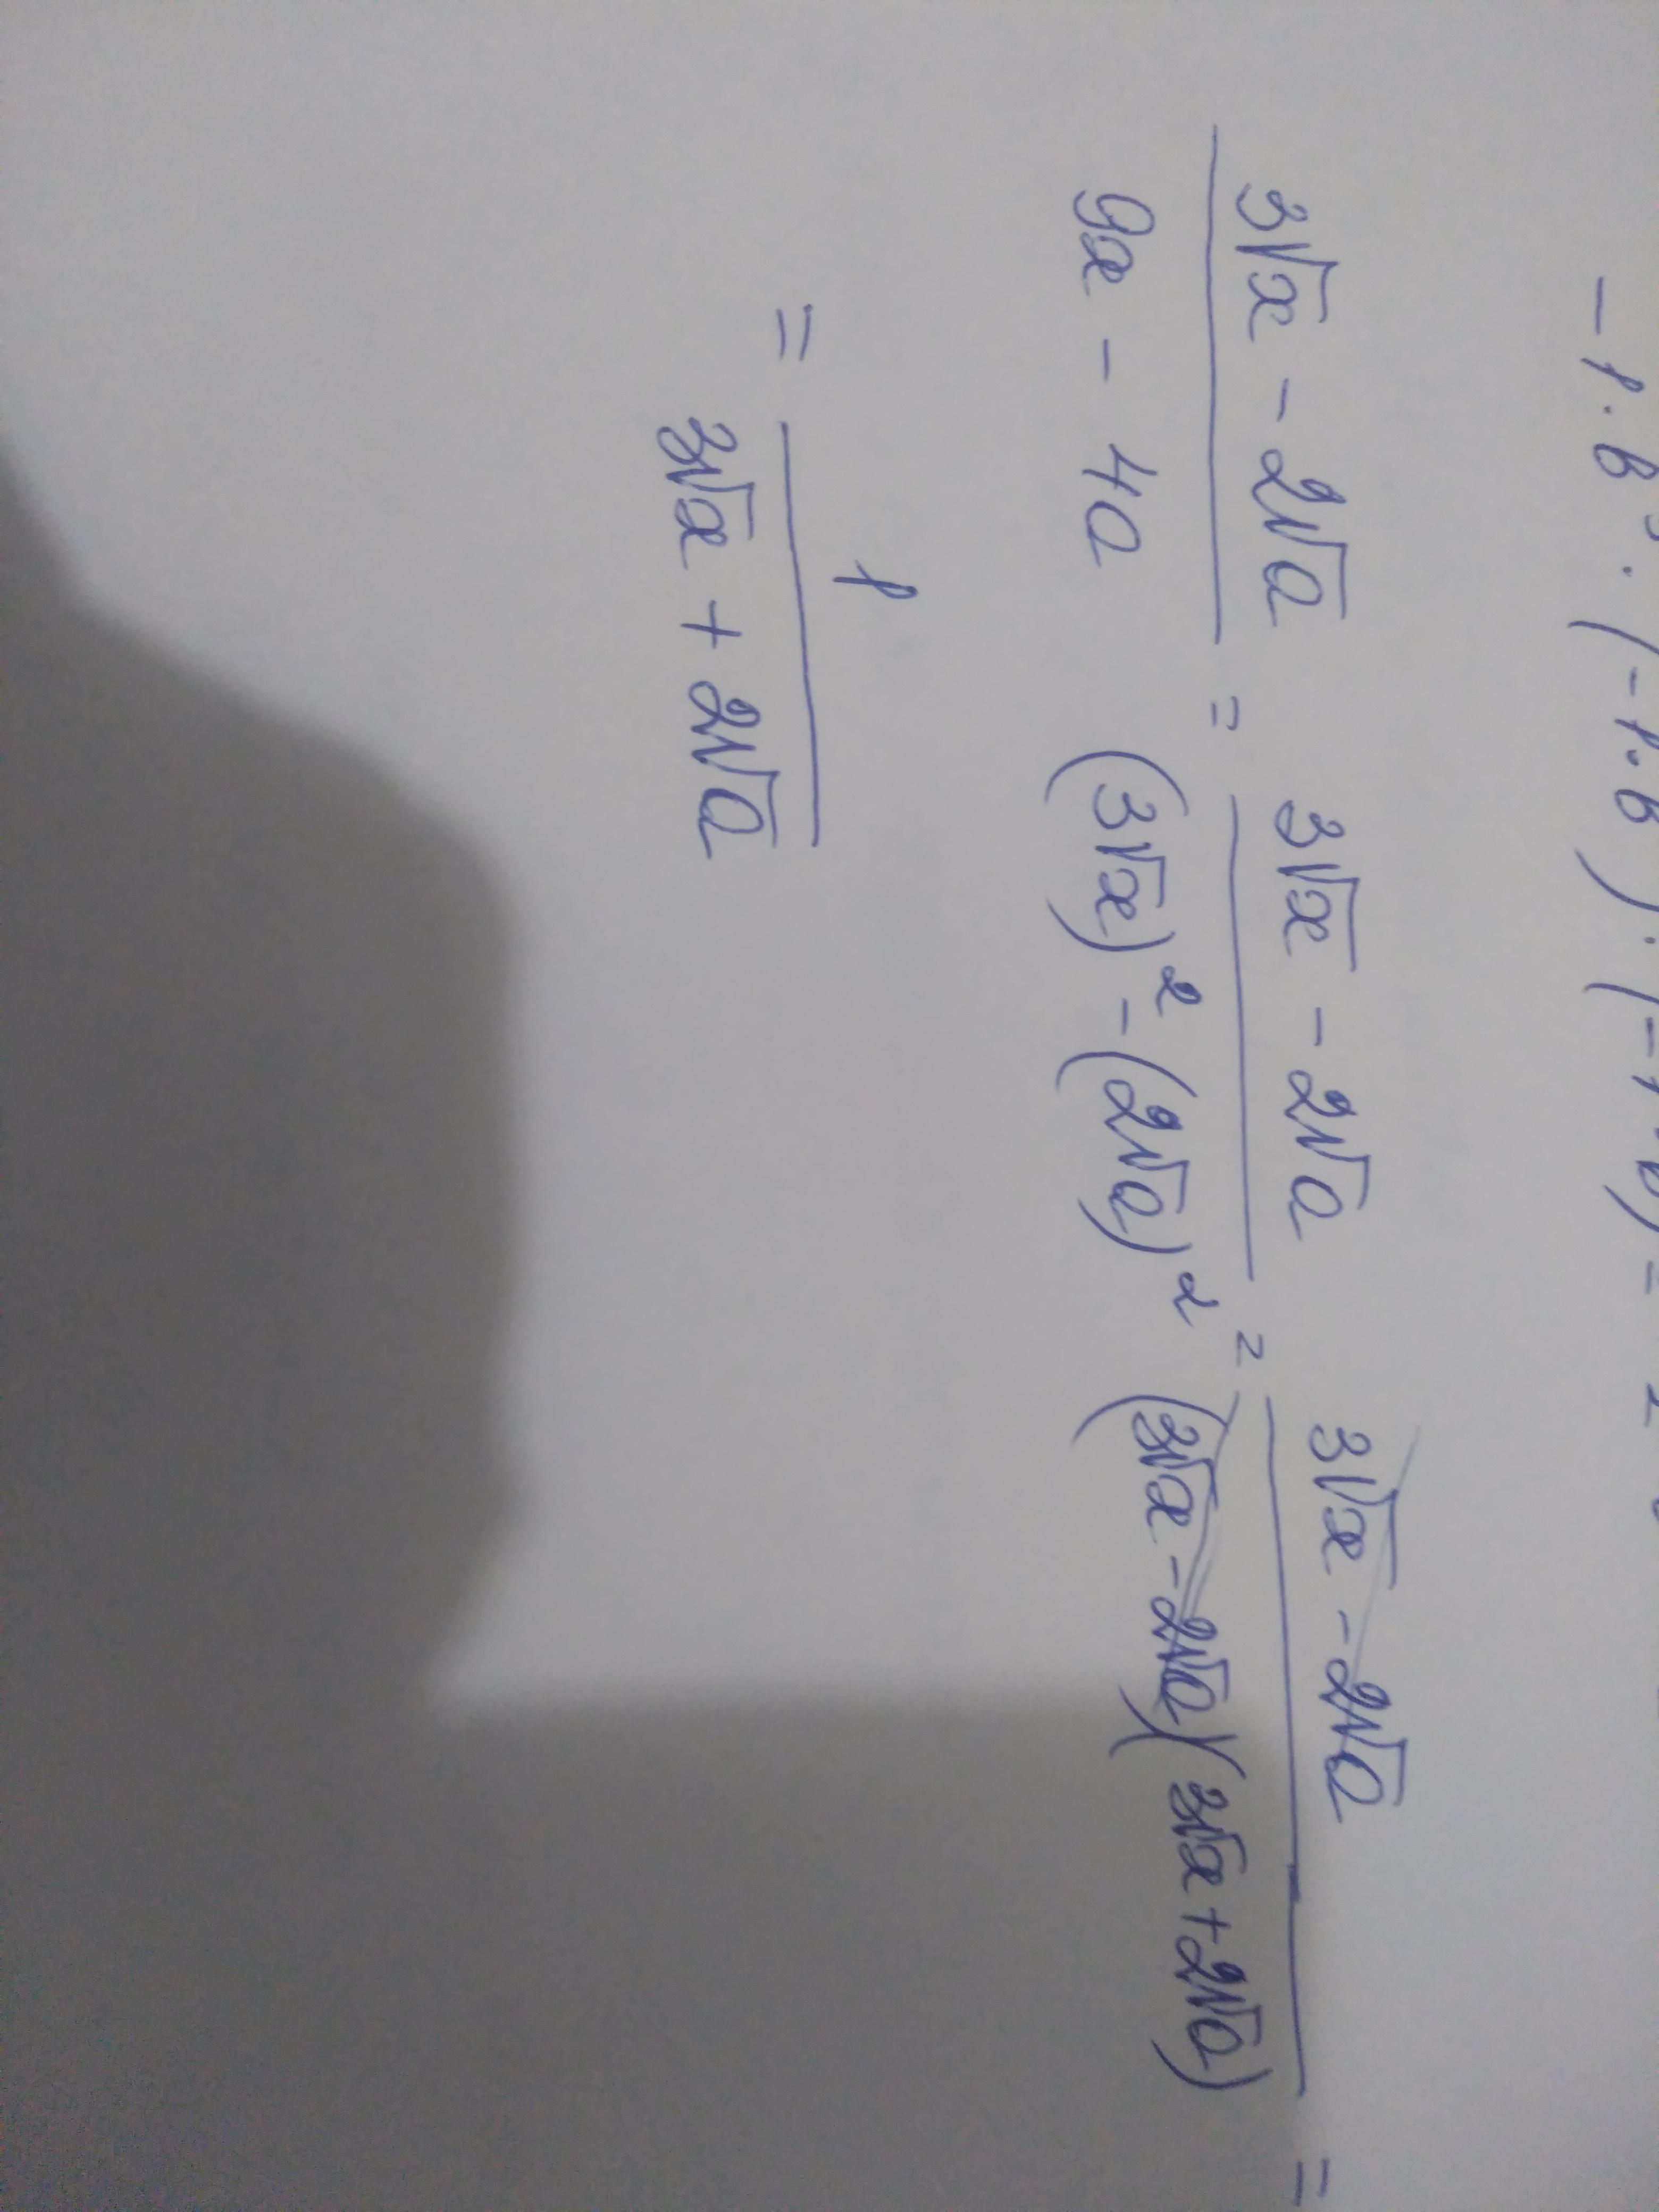 -1·b³·(-1·b)·(-1·b)=
3√x - 2√a / 9x - 4a = 3√x - 2√a / (3√x)² - (2√a)² = 3√x - 2√a / (3√x - 2√a)(3√x + 2√a) =
= 1 / 3√x + 2√a